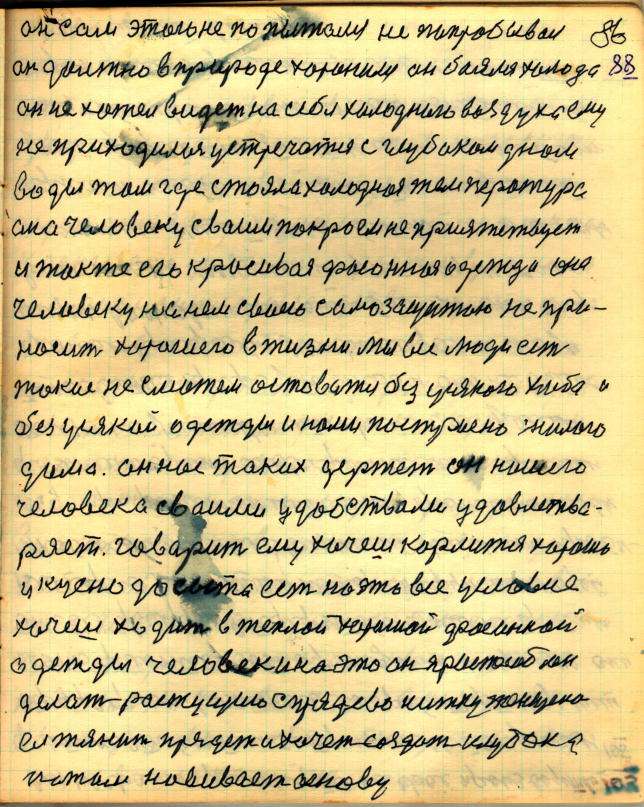 он сам этого не попытали не попробывал 86
он должно в природе хоронили он боялся холода 88
он не хотел видет на себя холодного воздуха ему
не приходился устречатся с глубоком дном
воды там где стояла холодная температура
она человеку сваим покроем не приятствует
и также его красивая фасонная одежда она
человеку на нем своею самозащитою не при-
носит хорошего в жизни. Мы все люди ест
такие не сможем оставатся без усякого хлеба и
без усякой одежды и нами построено жилого
дома. он нас таких держет он нашего
человека сваими удобствами удовлетва-
ряет. говарит ему хочеш кормится хорошо
и кусно досыта ест на это все условие
хочеш ходит в теплой хорошой фасонной
одежды человек и на это он
делат растущую нитку
тянит прядет и хочет создат клубока
потом навивает основу